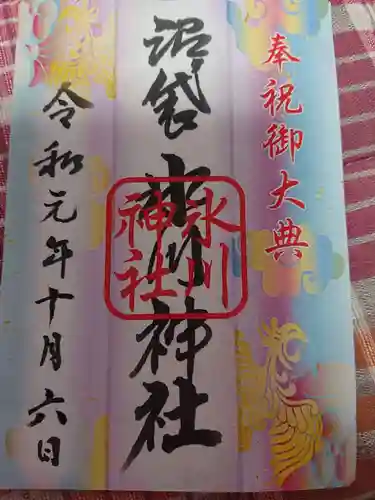 奉祝御大典
沼袋 氷川神社
氷川
神社
令和元年十月六日